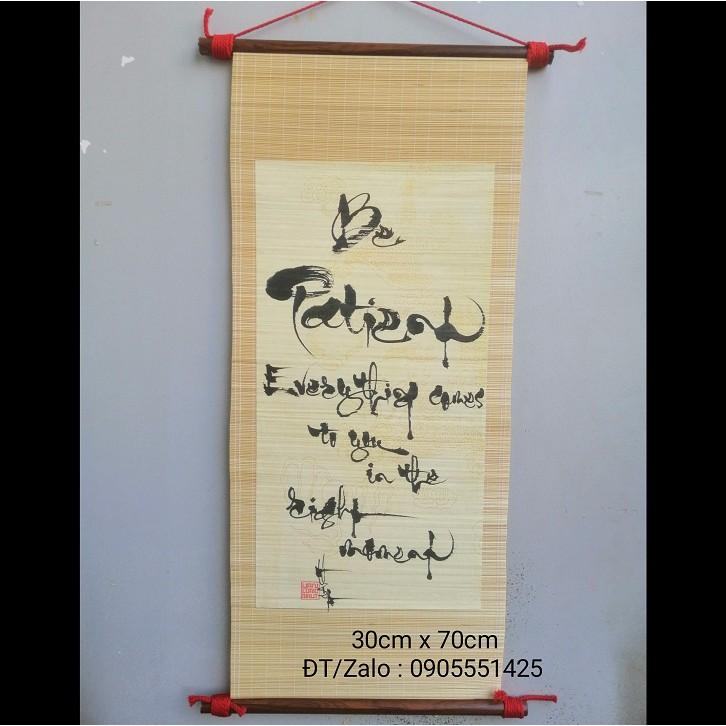 Be
Patient
Everything comes
to you
in the
right
moment
30cm x 70cm
ĐT/Zalo : 0905551425